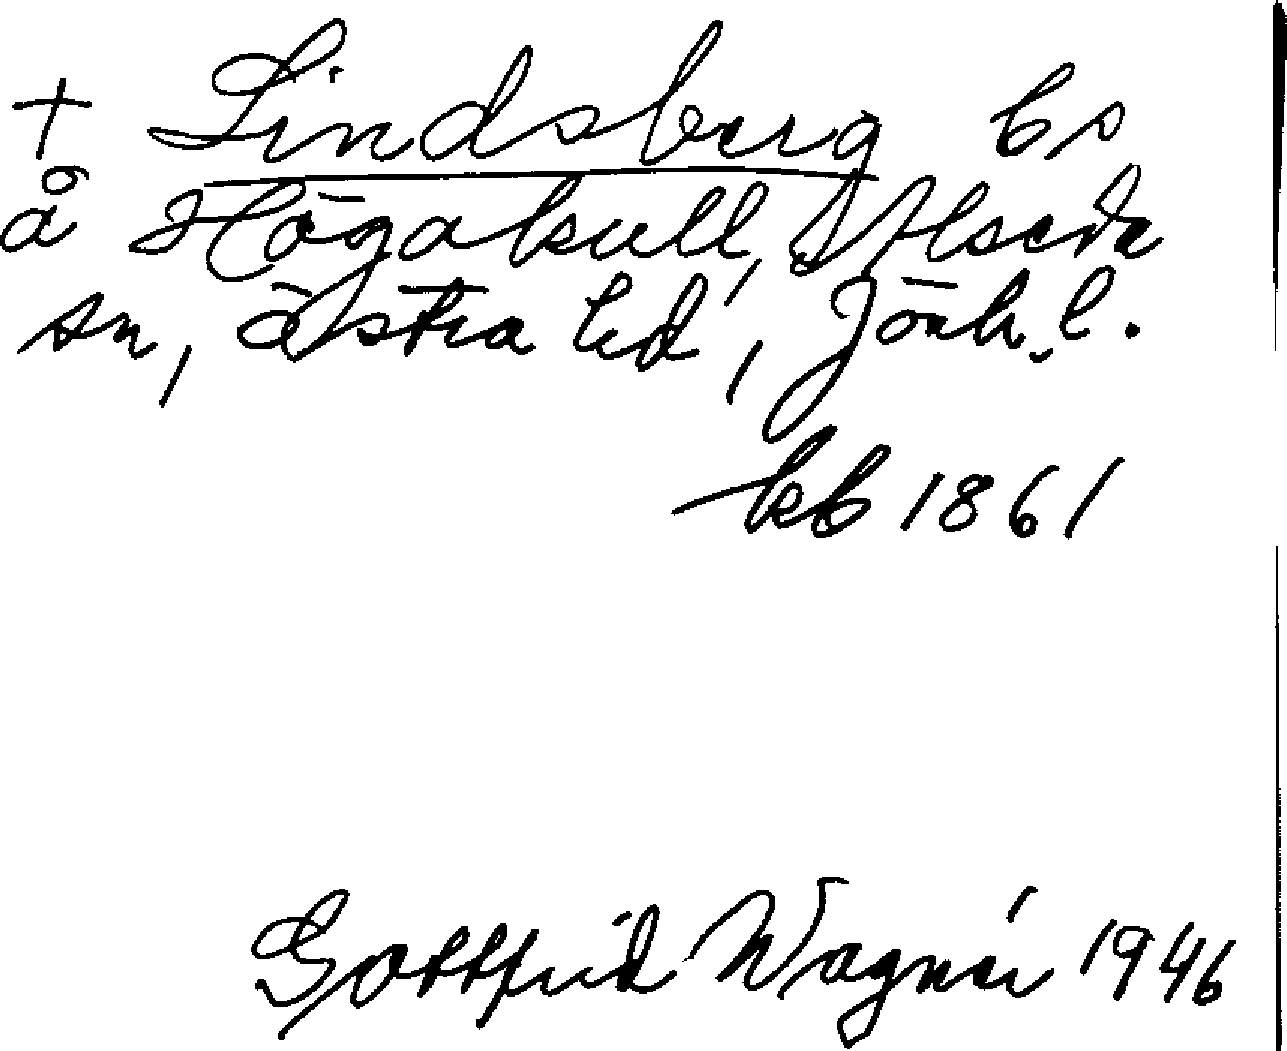 † Lindsberg bs
å Högakull, Alseda
sn, östra hd, Jönk. l.
kb 1861
Gottfrid Wagnér 1946